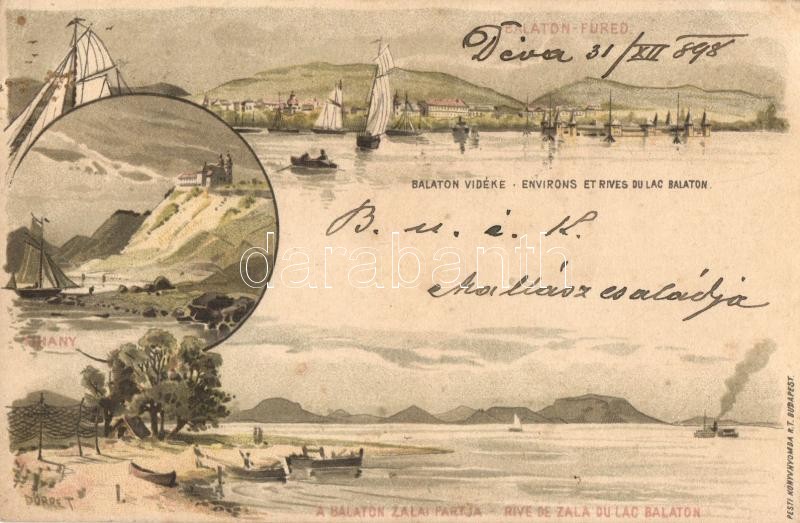 BALATON-FÜRED.
Déva 31/XII 898
BALATON VIDÉKE · ENVIRONS ET RIVES DU LAC BALATON.
B. u. é. k.
Mallász családja
darabanth
TIHANY
DÖRRET
A BALATON ZALAI PARTJA - RIVE DE ZALA DU LAC BALATON
PESTI KÖNYVNYOMDA R.T. BUDAPEST.